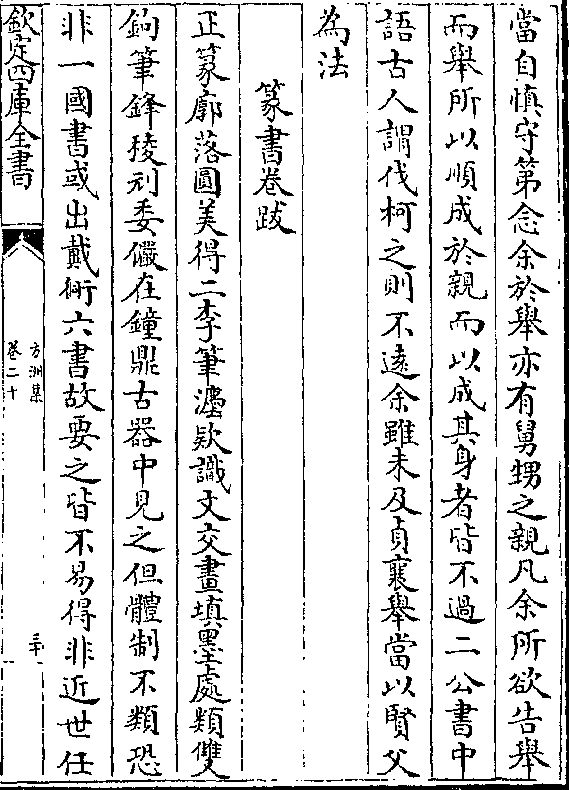 當自慎守第念余於舉亦有舅甥之親凡余所欲告舉
而舉所以順成於親而以成其身者皆不過二公書中
語古人謂伐柯之則不遠余雖未及貞襄舉當以賢父
為法
篆書卷跋
正篆廓落圓美得二李筆灋欵識文交畫填墨處類雙
鉤筆鋒稜利委儼在鐘鼎古器中見之但體制不類恐
非一國書或出戴衕六書故要之皆不易得非近世任
欽定四庫全書
方洲集
卷二十
三十